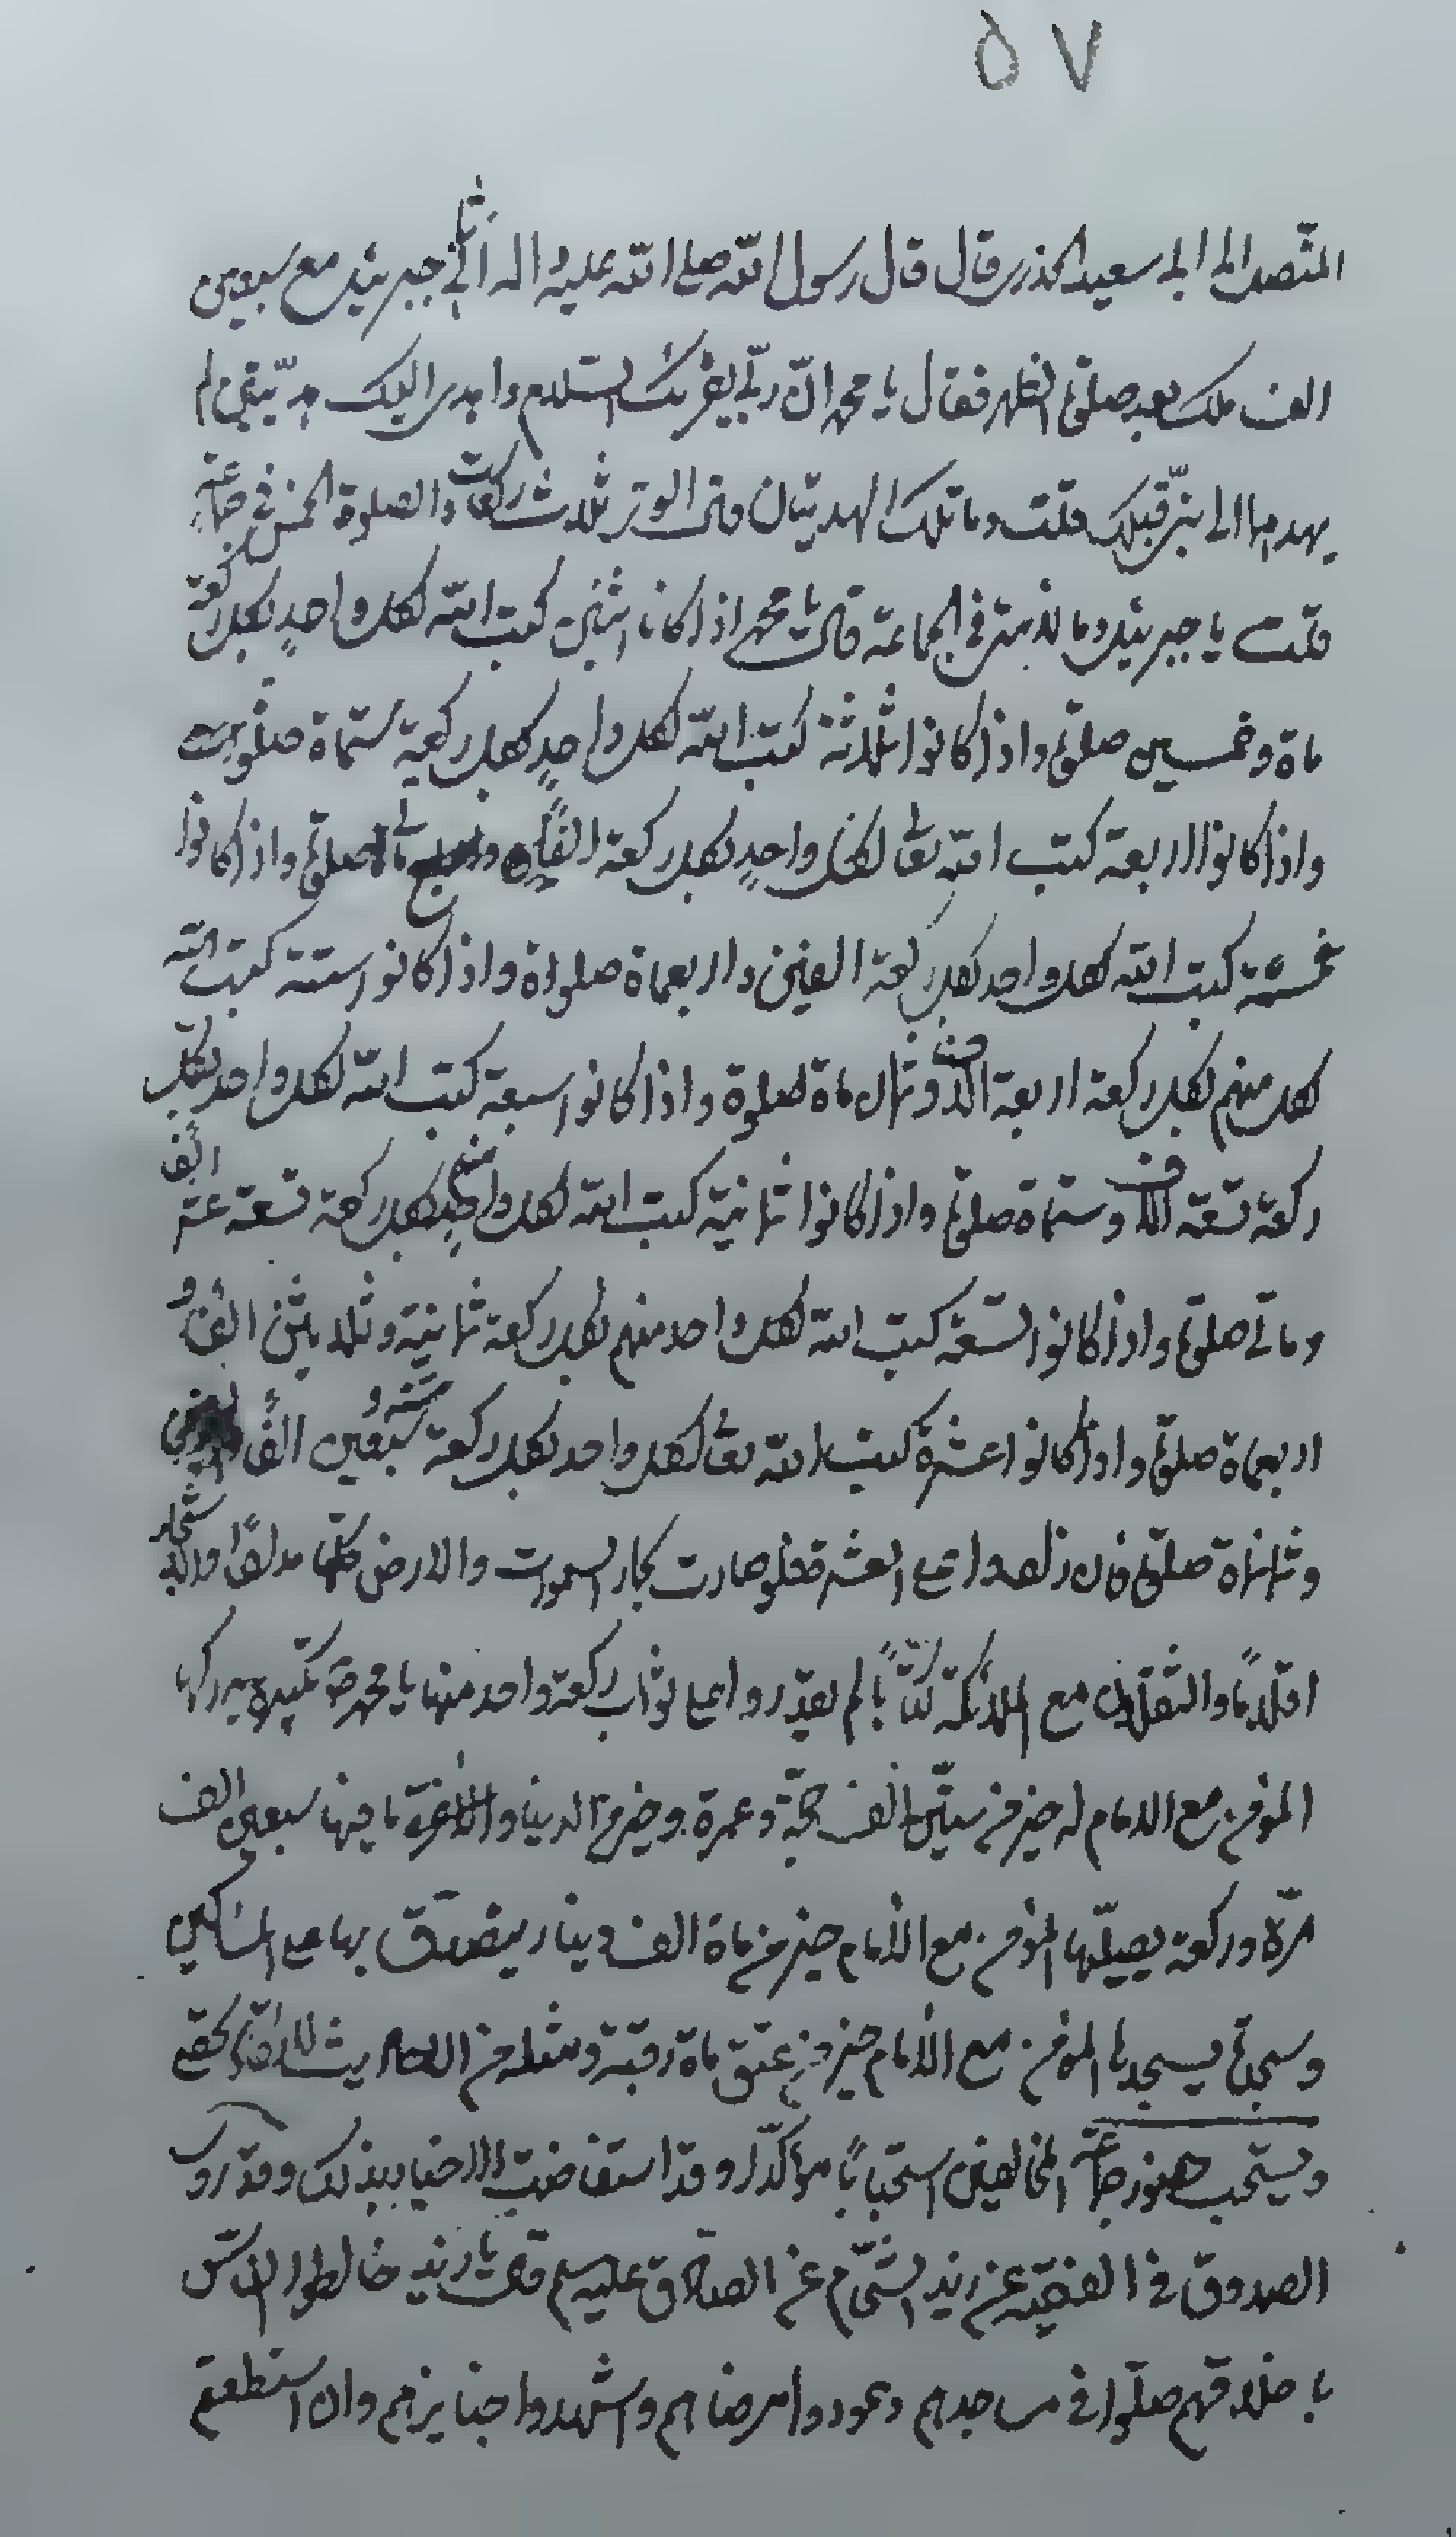 ٥٧
المتصل الى ابى سعيد الخدرى قال قال رسول الله صلى الله عليه واله اتانى جبرئيل مع سبعين
الف ملك بعد صلوة الظهر فقال يا محمد ان ربك يقرئك السلام واهدى اليك هديتين لم
يهدهما الى نبى قبلك قلت وما تلك الهديتان قال الوتر ثلاث ركعات والصلوة الخمس فى جماعة
قلت يا جبرئيل وما لامتى فى الجماعة قال يا محمد اذا كانا اثنين كتب الله لكل واحدٍ بكل ركعة
ماة وخمسين صلوة واذا كانوا ثلاثة كتب الله لكل واحدٍ بكل ركعة ستماة صلوة
واذا كانوا اربعة كتب الله تعالى لكل واحدٍ بكل ركعة الفا ومأتى صلوة واذا كانوا
خمسة كتب الله لكل واحد بكل ركعة الفين واربعماة صلوة واذا كانوا ستة كتب الله
لكل منهم بكل ركعة اربعة الاف وثمان ماة صلوة واذا كانوا سبعة كتب الله لكل واحد بكل
ركعة تسعة الاف وستماة صلوة واذا كانوا ثمانية كتب الله لكل واحدٍ منهم بكل ركعة تسعة عشر الف
ومأتى صلوة واذا كانوا تسعة كتب الله لكل واحد منهم بكل ركعة ثمانية وثلاثين الفا و
اربعماة صلوة واذا كانوا عشرة كتب الله تعالى لكل واحد بكل ركعة ستة وسبعين الفا
وثمانماة صلوة فان زادوا على العشرة فلو صارت بحار السموات والارض كلها مدادًا والاشجار
اقلامًا والثقلان مع الملائكة كتّابًا لم يقدروا على ثواب ركعة واحد منها يا محمد تكبيرة يدركها
المؤمن مع الامام له خير من ستين الف حجة وعمرة وخير من الدنيا وما فيها سبعين الف
مرّة وركعة يصلّيها المؤمن مع الامام خير من ماة الف دينار يتصدق بها على المساكين
وسجدة يسجدها المؤمن مع الامام خير من عتق ماة رقبة ومثله من الاحاديث
ويستحب حضور جماعة المخالفين استحبابًا مؤكدًا وقد استفاضت الاخبار بذلك وقد روى
الصدوق فى الفقيه عن زيد الشحّام عن الصادق عليه سلم قال يا زيد خالطوا الناس
باخلاقهم صلّوا فى مساجدهم وعودوا مرضاهم واشهدوا جنايزهم وان استطعتم